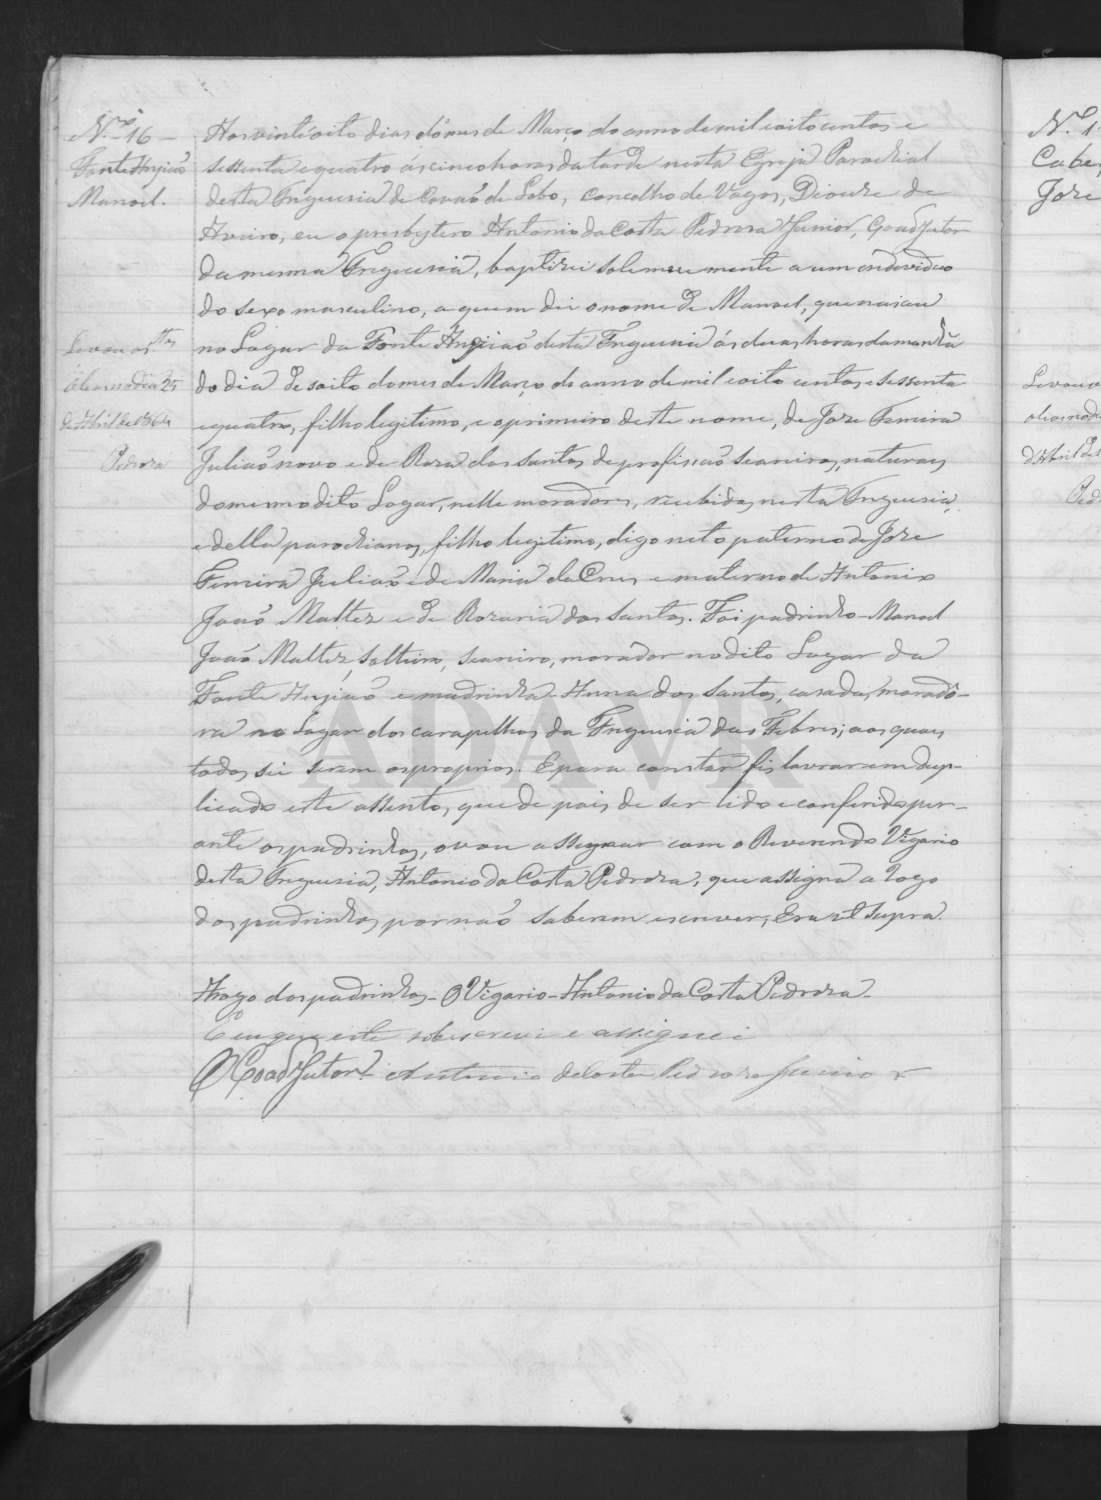 N.º 16
Fonte Anjião
Manoel.
Aos vinte oito dias do mes de Março do anno de mil oito centos e
sessenta e quatro ás cinco horas da tarde nesta Egreja Parochial
desta Freguesia de Covão de Lobo, concelho de Vagos, Diocese de
Aveiro, eu o presbytero Antonio da Costa Pedroza Junior, Coadjutor
da mesma Freguesia, baptizei solemnemente a um endeviduo
do sexo masculino, a quem dei o nome de Manoel, que nasceu
no Lugar da Fonte Anjião desta Freguesia ás duas horas da manhã
do dia desoito do mes de Março do anno de mil oito centos e sessenta
e quatro, filho legitimo, e o primeiro deste nome, de Joze Ferreira
Julião novo e de Roza dos Santos de profissão seareiros, naturaes
do mesmo dito Lugar, nelle moradores, recebidos nesta Freguesia,
e della parochianos, filho legitimo, digo neto paterno de Joze
Ferreira Julião e de Maria da Cruz e materno de Antonio
João Maltez e de Rozaria dos Santos. Foi padrinho Manoel
João Maltez, solteiro, seareiro, morador no dito Lugar da
Fonte Anjião e madrinha Anna dos Santos, casada, morado-
ra no Lugar dos carapelhos da Freguesia das Febres; aos quaes
todos sei serem os proprios. E para constar fis lavrar em dup-
licado este assento, que de pois de ser lido e conferido per-
ante os padrinhos, o vou assegnar com o Reverendo Vigario
desta Freguesia, Antonio da Costa Pedroza, que assigna a rogo
dos padrinhos por não saberem escrever, Era ut supra.
A rogo dos padrinhos - O Vigario - Antonio da Costa Pedroza
E eu que este sobscrevi e assignei
O Coadjutor Antonio da Costa Pedroza Junior
Levou os
oleos no dia 25
de Abril de 1864
Pedroza
ADAVR
N.º 1
Cabe
Joze
Levou o
oleos no di
d'Abril
Ped